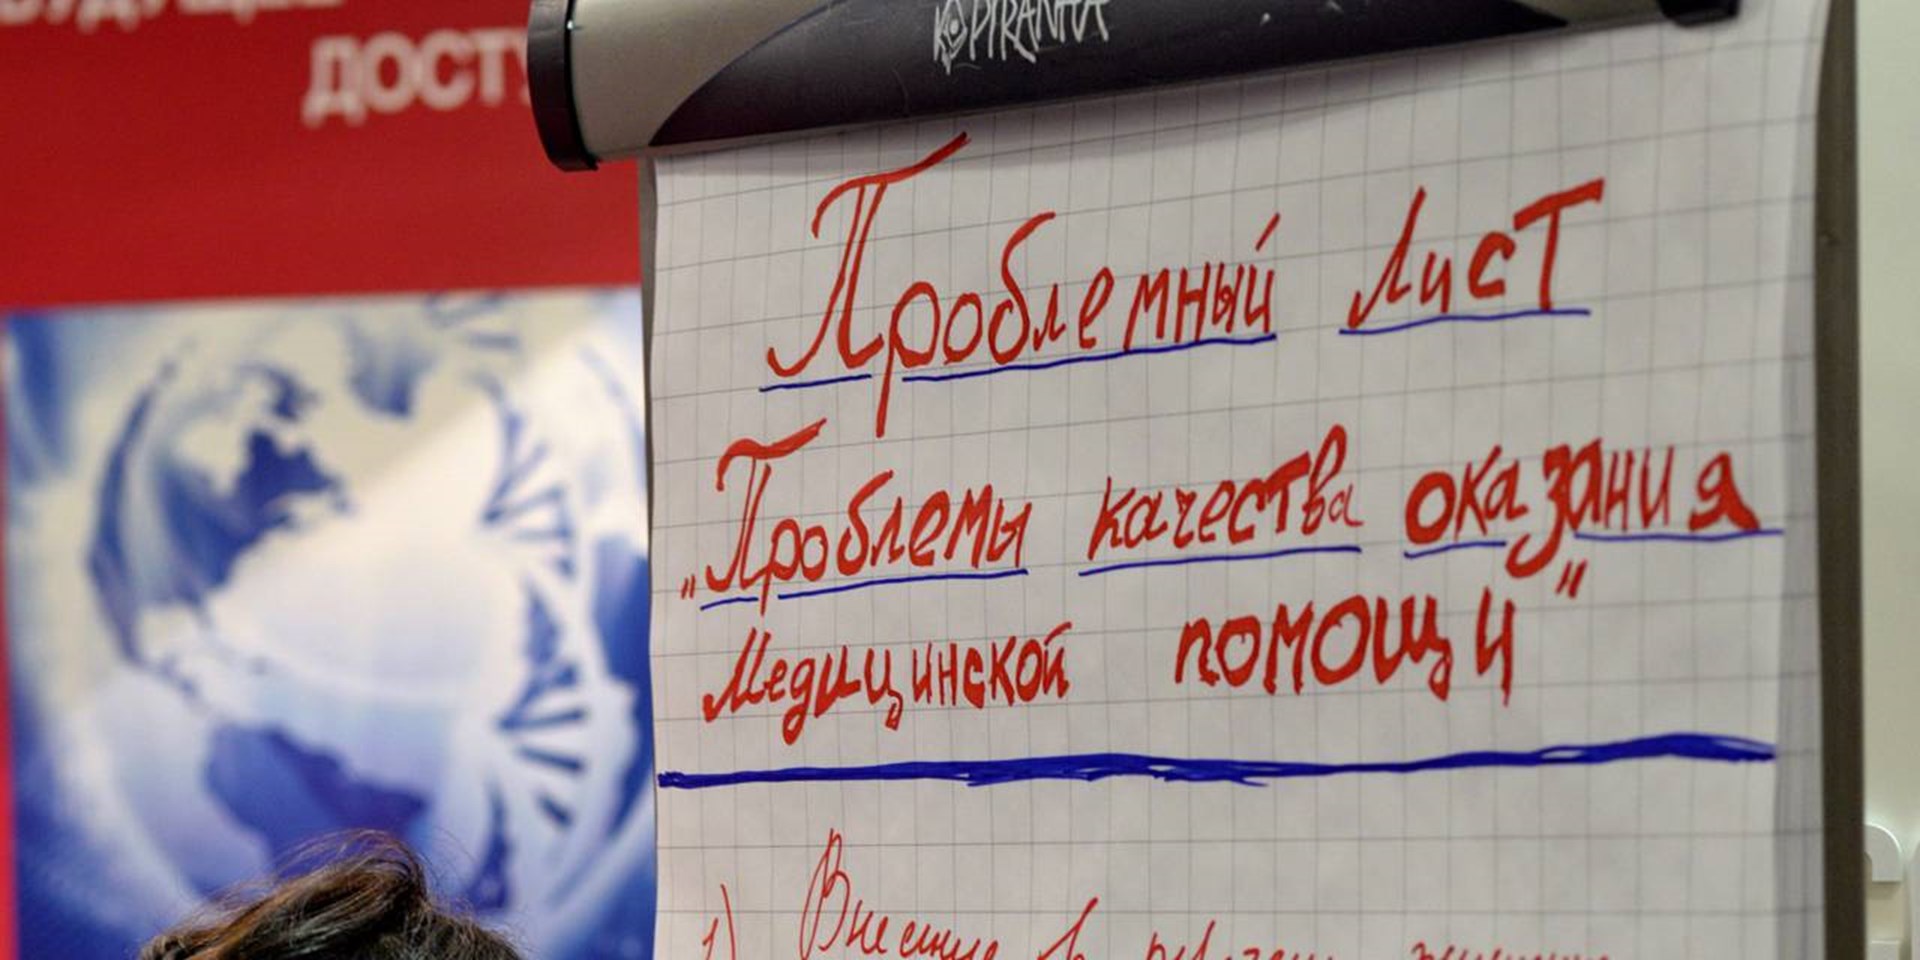 ДОСТУ
KOPIRANHA
Проблемный Лист
„Проблемы качества оказания
Медицинской помощи"
1) Внесение в